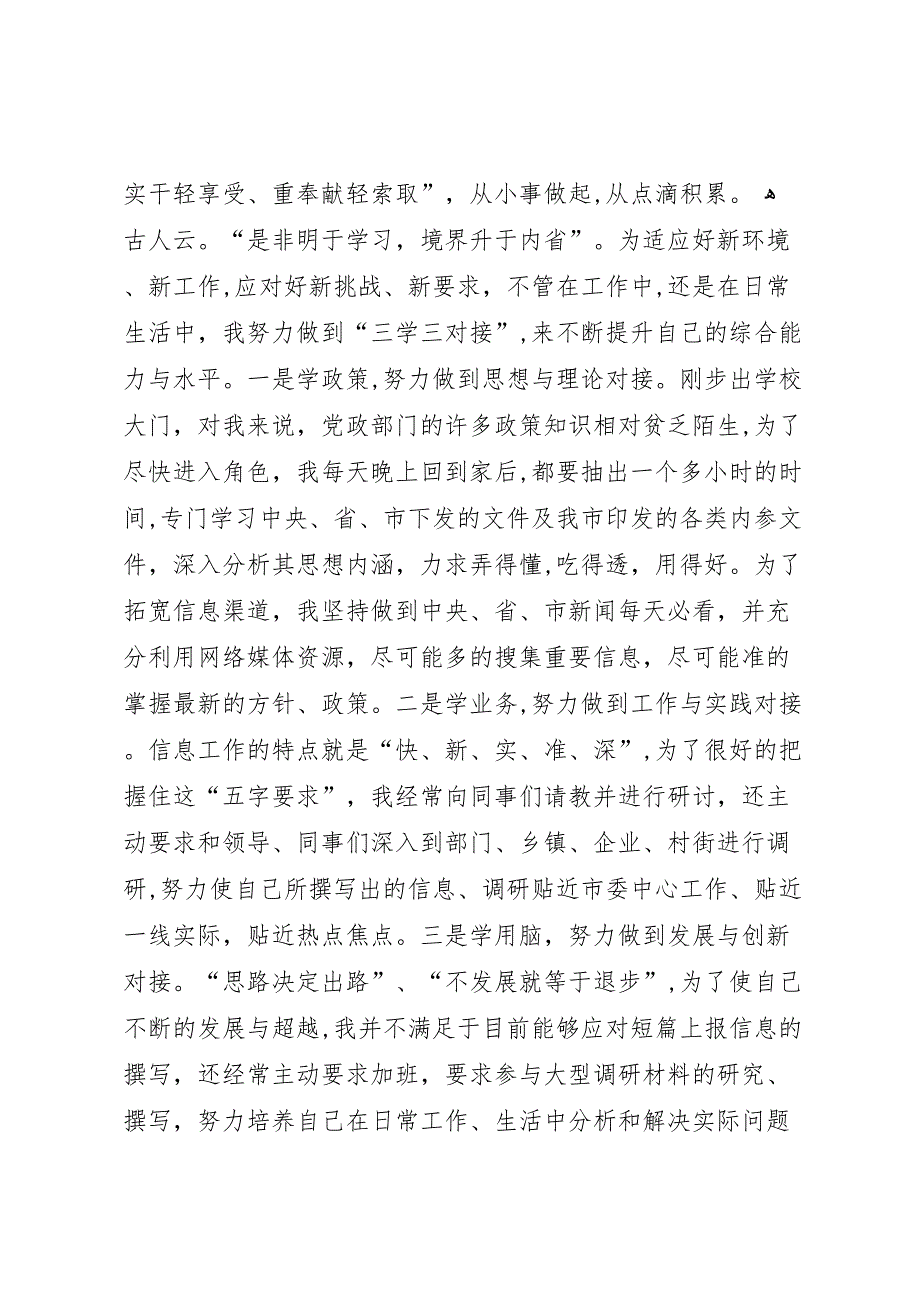 实干轻享受、重奉献轻索取”，从小事做起,从点滴积累。 ه
古人云。“是非明于学习，境界升于内省”。为适应好新环境
、新工作,应对好新挑战、新要求，不管在工作中,还是在日常
生活中，我努力做到“三学三对接”,来不断提升自己的综合能
力与水平。一是学政策,努力做到思想与理论对接。刚步出学校
大门，对我来说，党政部门的许多政策知识相对贫乏陌生,为了
尽快进入角色，我每天晚上回到家后,都要抽出一个多小时的时
间,专门学习中央、省、市下发的文件及我市印发的各类内参文
件，深入分析其思想内涵，力求弄得懂,吃得透，用得好。为了
拓宽信息渠道，我坚持做到中央、省、市新闻每天必看，并充
分利用网络媒体资源，尽可能多的搜集重要信息，尽可能准的
掌握最新的方针、政策。二是学业务,努力做到工作与实践对接
。信息工作的特点就是“快、新、实、准、深”,为了很好的把
握住这“五字要求”，我经常向同事们请教并进行研讨，还主
动要求和领导、同事们深入到部门、乡镇、企业、村街进行调
研,努力使自己所撰写出的信息、调研贴近市委中心工作、贴近
一线实际，贴近热点焦点。三是学用脑，努力做到发展与创新
对接。“思路决定出路”、“不发展就等于退步”,为了使自己
不断的发展与超越,我并不满足于目前能够应对短篇上报信息的
撰写，还经常主动要求加班，要求参与大型调研材料的研究、
撰写，努力培养自己在日常工作、生活中分析和解决实际问题